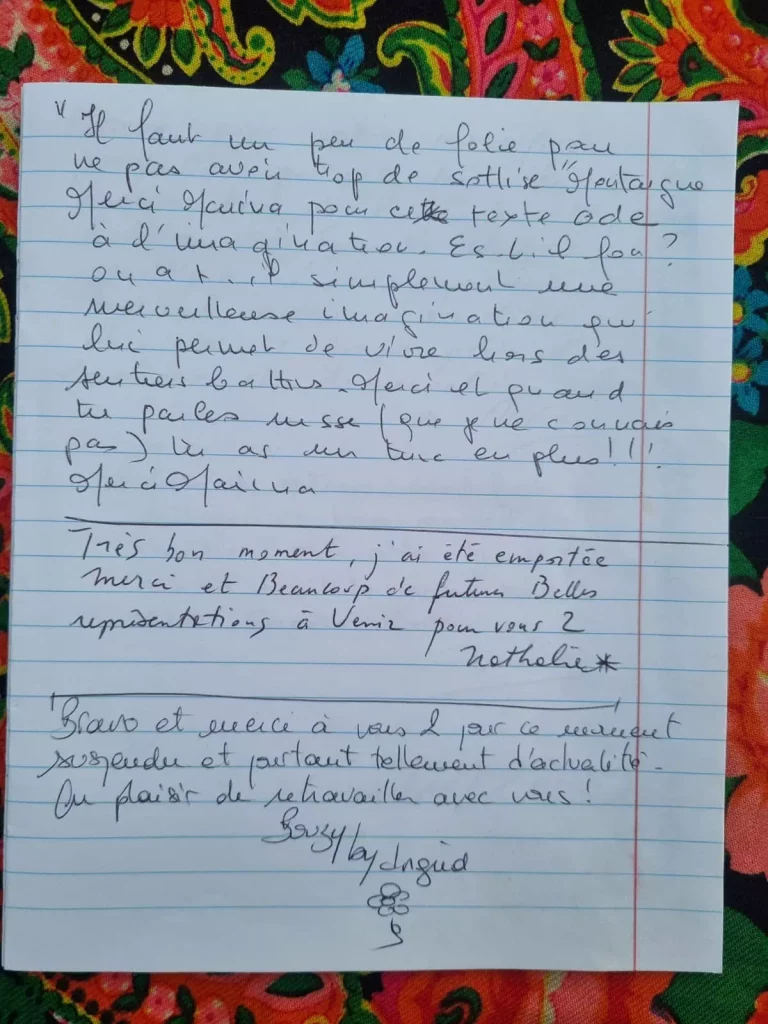 "Il faut un peu de folie pour
ne pas avoir trop de sottise" Montaigne
Merci Marina pour cette texte ode
à l'imagination. Est-il fou?
ou a t-il simplement une
merveilleuse imagination qui
lui permet de vivre hors des
sentiers battus. Merci et quand
tu parles russe (que je ne connais
pas) tu as un truc en plus!!!
Merci Marina
Très bon moment, j'ai été emportée
merci et Beaucoup de futures Belles
représentations à Venir pour vous 2
Nathalie*
Bravo et merci à vous 2 pour ce moment
suspendu et pourtant tellement d'actualité.
Au plaisir de retravailler avec vous!
by Ingrid